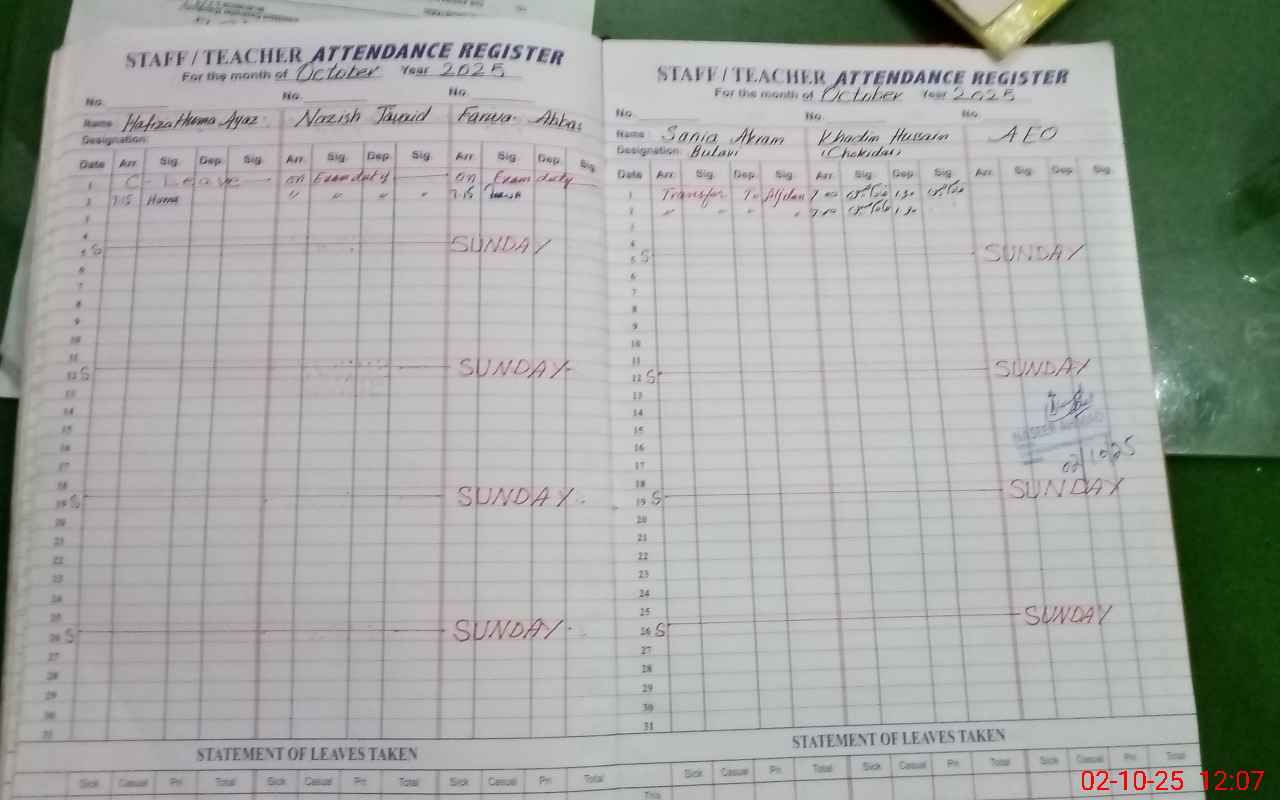 STAFF / TEACHER ATTENDANCE REGISTER
For the month of October Year 2025
No. No. No.
Name Hafiza Huma Ayaz Nazish Javaid Farwa Abbas
Designation
Date Arr. Sig. Dep. Sig. Arr. Sig. Dep. Sig. Arr. Sig. Dep. Sig.
1 C - Leave on Exam duty on Exam duty
2 7:15 Huma " " " " 7:15
3
4
5 S SUNDAY
6
7
8
9
10
11
12 S SUNDAY
13
14
15
16
17
18
19 S SUNDAY
20
21
22
23
24
25
26 S SUNDAY
27
28
29
30
31
STATEMENT OF LEAVES TAKEN
Sick Casual Pri Total Sick Casual Pri Total Sick Casual Pri Total
STAFF / TEACHER ATTENDANCE REGISTER
For the month of October Year 2025
No. No. No.
Name Sania Akram Khadim Hussain AEO
Designation (Chokidar)
Date Arr. Sig. Dep. Sig. Arr. Sig. Dep. Sig. Arr. Sig. Dep. Sig.
1 Transfer To 7 00 1 30
2 " " " 7 00 1 30
3
4
5 S SUNDAY
6
7
8
9
10
11
12 S SUNDAY
13
14
15
16
17
02/10/25
18
19 S SUNDAY
20
21
22
23
24
25
26 S SUNDAY
27
28
29
30
31
STATEMENT OF LEAVES TAKEN
Sick Casual Pri Total Sick Casual Pri Total Sick Casual Pri Total
This
02-10-25 12:07